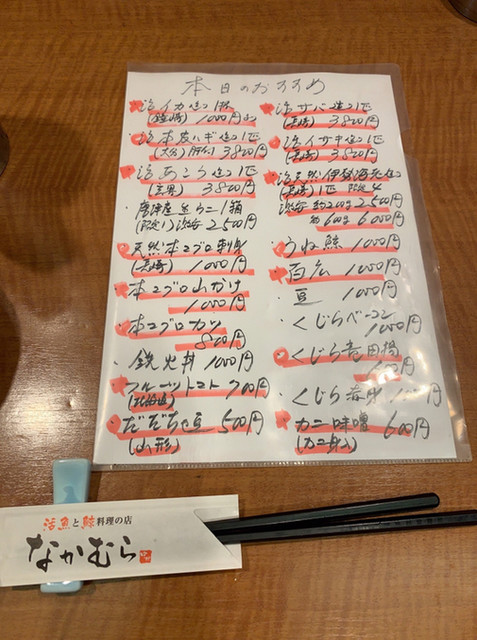 本日のおすすめ
活イカ造り1杯
(長崎) 1000円
活本カワハギ造り1匹
(大分) 肝付 3800円
活あこう造り1匹
3800円
唐津産生ウニ1箱
(限定1) 2500円
天然本マグロ刺身
(長崎) 1000円
本マグロ山かけ
1000円
本マグロカツ
800円
鉄火丼 1000円
フルーツトマト 700円
(北海道)
だだちゃ豆 500円
(山形)
活サバ造り1匹
(長崎) 3800円
活イサキ造り1匹
(長崎) 3800円
活天然伊勢海老造
(長崎) 1匹 限定4
約200g 2500円
約600g 6000円
うね鯨 1000円
百広 1000円
豆 1000円
くじらベーコン
1000円
くじら竜田揚
くじら
カニ味噌 600円
(カニ身入)
活魚と鯨料理の店
なかむら